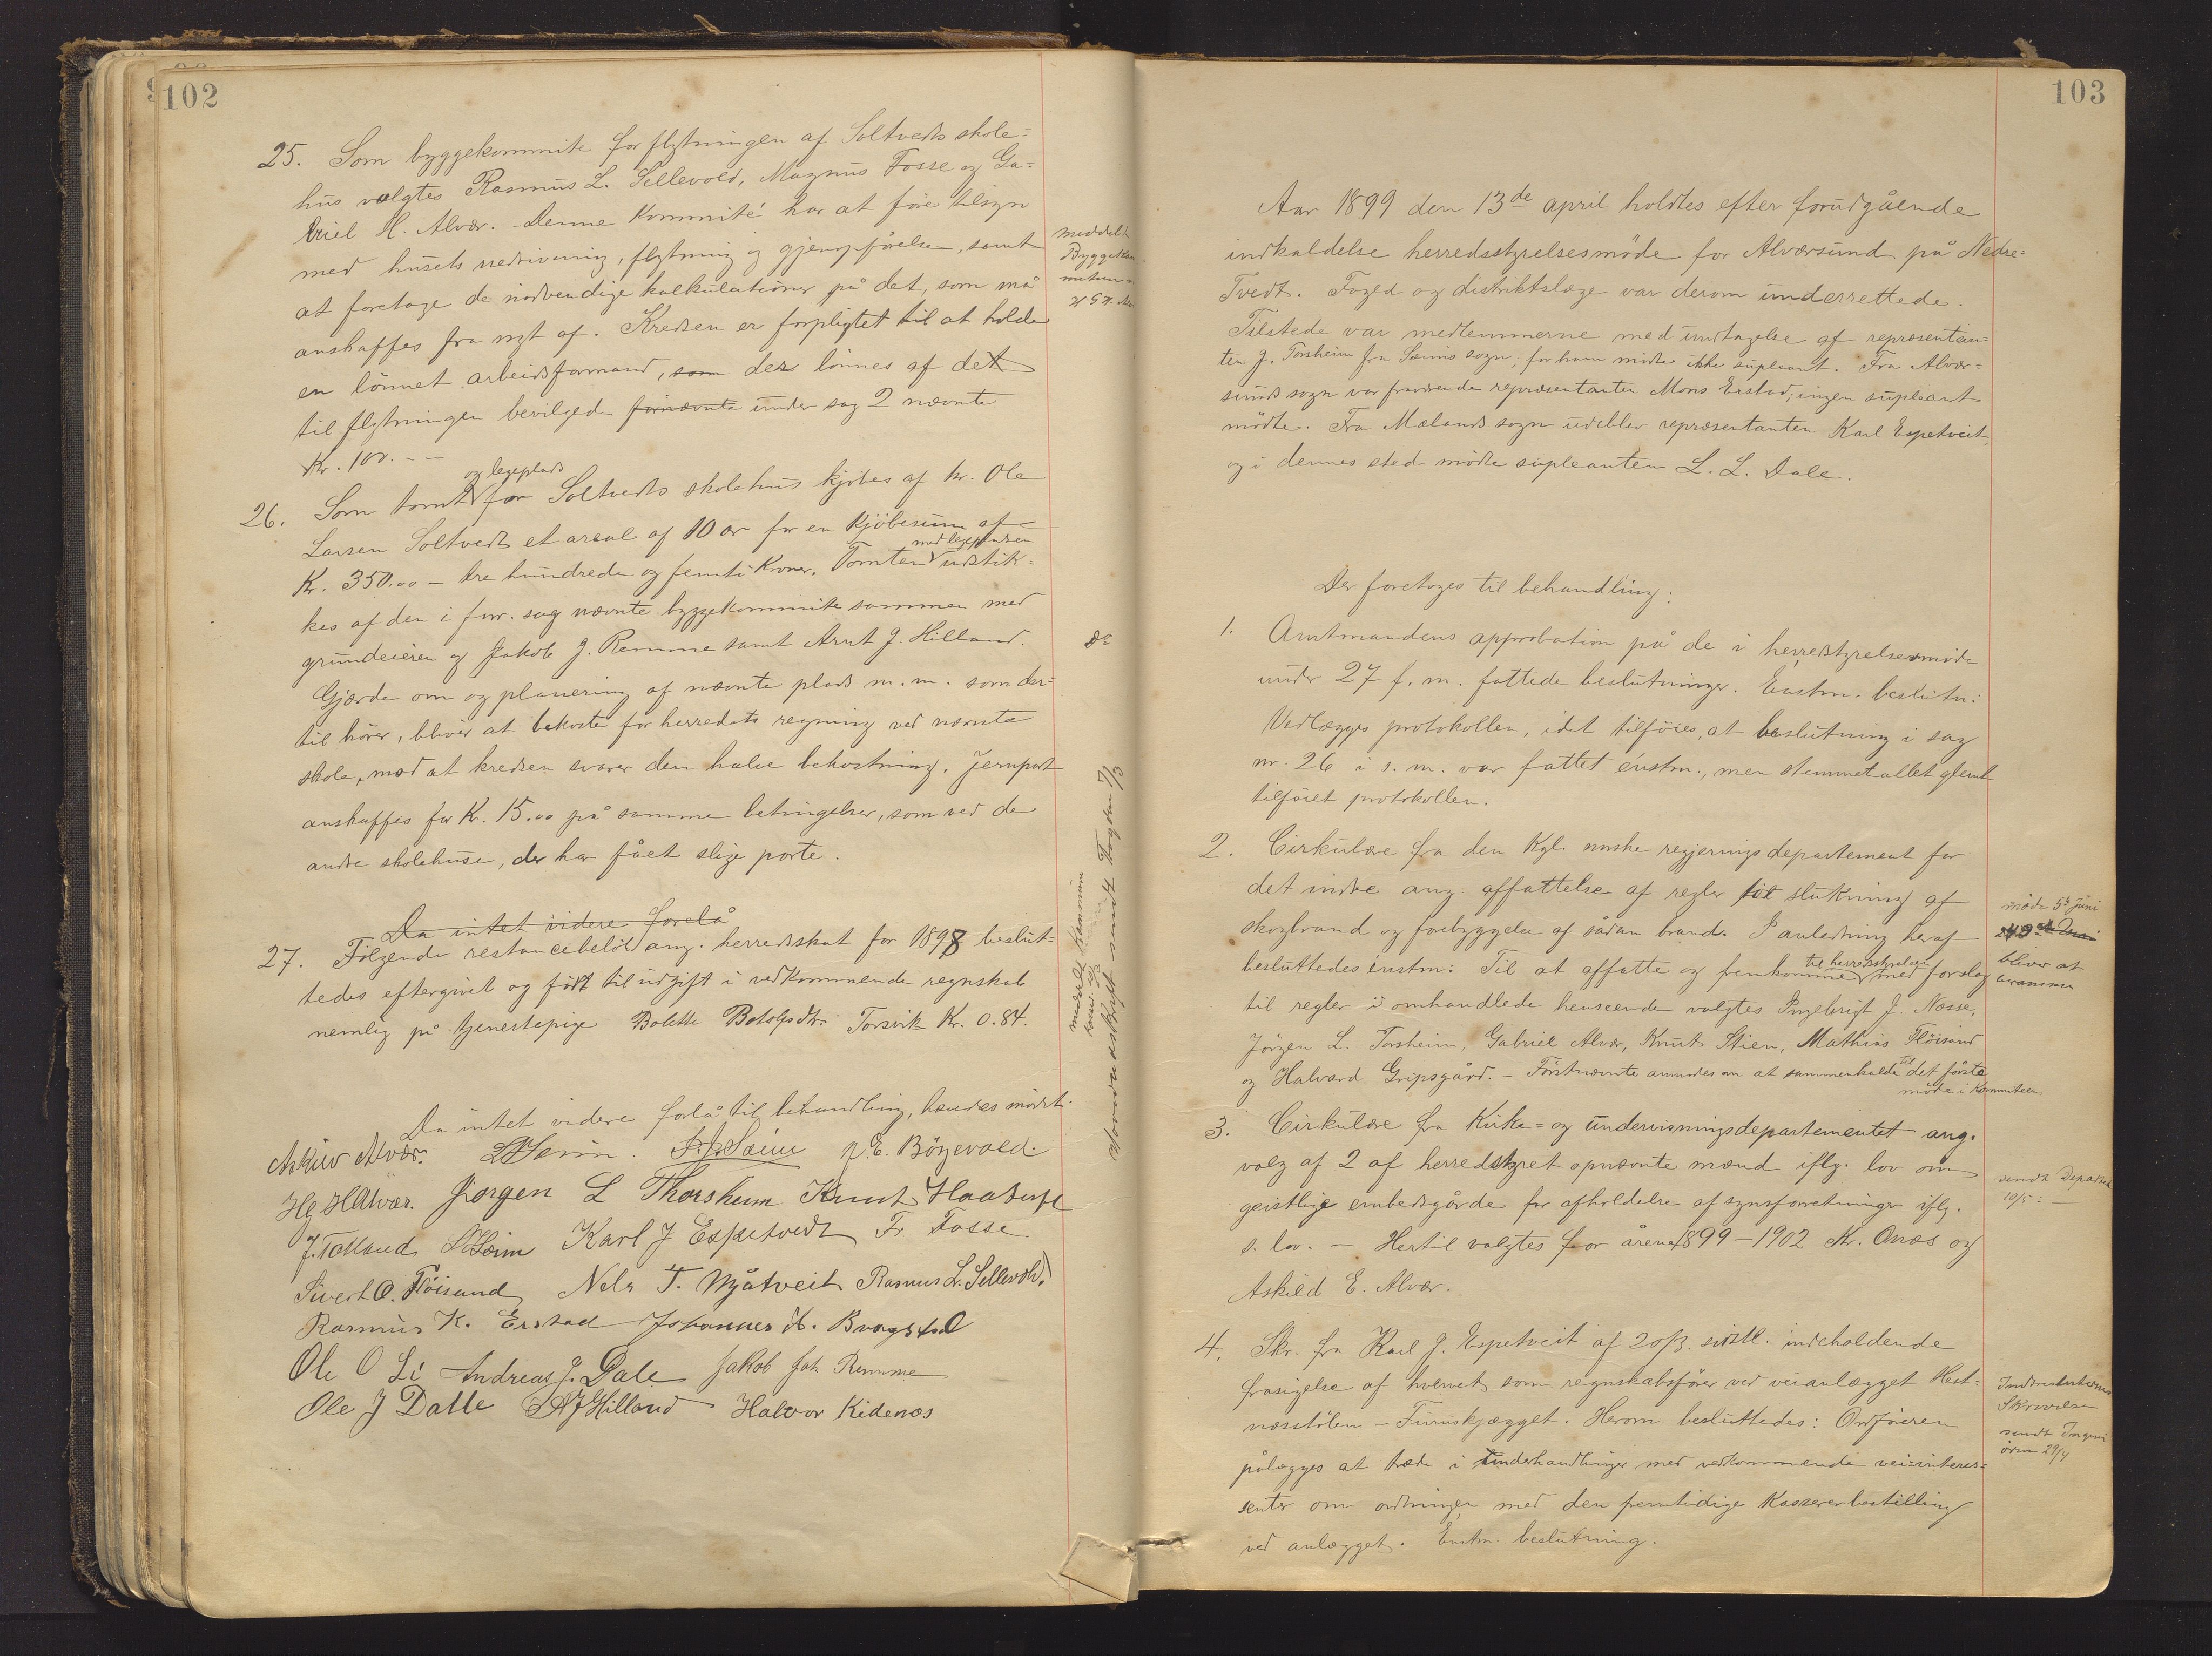 102
25. Som byggekommite for flytningen af Soltvedts skole=
hus valgtes Rasmus L. Sellevold, Magnus Fosse og Ga=
briel H. Alvær. Denne Kommité har at føre tilsyn
med husets nedrivning, flytning og gjenopførelse, samt
at foretage de nødvendige kalkulationer på det, som må
anskaffes fra nyt af. Kredsen er forpligtet til at holde
en lönnet arbeidsformand, som der lönnes af det
til flytningen bevilgede fornævnte under sag 2 nævnte
Kr. 100. - -
og legeplads
26. Som tomt for Soltvedts skolehus kjöbes af hr. Ole
Larsen Soltvedt et areal af 10 ar for en Kjöbesum af
med legepladsen
Kr. 350.00 - tre hundrede og femti Kroner. Tomten udstik=
kes af den i forr. sag nævnte byggekommite sammen med
grundeieren og Jakob J. Remme samt Arnt J. Hilland.
Gjærde om og planering af nævnte plads m.m. som der=
til hörer, bliver at bekoste for herredets regning ved nævnte
skole, mod at kredsen svarer den halve bekostning. Jernport
anskaffes for Kr. 15.00 på samme betingelser, som ved de
andre skolehuse, der har fået slige porte.
Da intet videre forelå
27. Fölgende restancebelöb ang. herredsskat for 1898 beslut=
tedes eftergivet og fört til udgift i vedkommende regnskab
nemlig på tjenestepige Bolette Botolfsdtr. Torsvik Kr. 0.84.
Da intet videre forlå til behandling, hævedes mödet.
Askild Alvær. J. J. Sæim p. E. Böyevold.
H. Alvær. Jørgen L Thorsheim Knut
J. Tolland Karl J Espetvedt Fr. Fosse
Sivert O. Flöisand Nels T. Mjåtveit Rasmus L. Sellevold.
Rasmus K. Erstad Johannes H. Bragstad
Ole O Li Andreas J. Dale Jakob Joh Remme
Ole J Dalle A J Hilland Halvor Kidenæs
meddelt
Byggekom
miteen
Do
meddelt Kommune
Hovedudskrift sendt Fogden 7/3
103
Aar 1899 den 13de april holdtes efter forudgående
indkaldelse herredsstyrelsesmöde for Alværsund på Nedre=
Tvedt. Foged og distriktslæge var derom underrettede.
Tilstede var medlemmerne med undtagelse af repræsentan=
ten J. Torsheim fra Sæims sogn, for ham mödte ikke supleant. Fra Alvær=
sunds sogn var fraværende repræsentanten Mons Erstad; ingen supleant
mödte. Fra Mælands sogn udeblev repræsentanten Karl Espetveit,
og i dennes sted mödte supleanten L. L. Dale.
Der foretoges til behandling:
1. Amtmandens approbation på de i herredstyrelsesmöde
under 27 f. m. fattede beslutninger. Enstm. beslutn:
Vedlægges protokollen, idet tilföies, at beslutning i sag
nr. 26 i s. m. var fattet enstm., men stemmetallet glemt
tilföiet protokollen.
2. Cirkulære fra den Kgl. norske regjerings departement for
det indre ang. affattelse af regler for slukning af
skogbrand og forebyggelse af sådan brand. I anledning heraf
til herredsstyrelsen
besluttedes enstm: Til at affatte og fremkomme med forslag
til regler i omhandlede henseende valgtes Ingebrigt J. Næsse,
Jörgen L. Torsheim, Gabriel Alvær, Knut Stien, Mathias Flöisand
og Halvard Gripsgård. - Förstnævnte anmodes om at sammenkalde til det förste
möde i Kommiteen.
3. Cirkulære fra Kirke= og undervisningsdepartementet ang.
valg af 2 af herredstyret opnævnte mænd iflg. lov om
geistlige embedsgårde for afholdelse af synsforretninger iflg.
s. lov. - Hertil valgtes for årene 1899-1902 Kr. Onæs og
Askild E. Alvær.
4. Skr. fra Karl J. Espetveit af 20/3. sidstl. indeholdende
frasigelse af hvervet som regnskabsförer ved veianlægget Hest=
næsstölen - Furuskjægget. Herom besluttedes: Ordföreren
pålægges at træde i underhandlinger med vedkommende veiinteres=
senter om ordningen med den fremtidige Kassererbestilling
ved anlægget. Enstm. beslutning.
möde 5te juni
bliver at
avanmere
sendt Departem
10/5
Indsendernes
Skrivelse
sendt Ingeni
ören 29/4